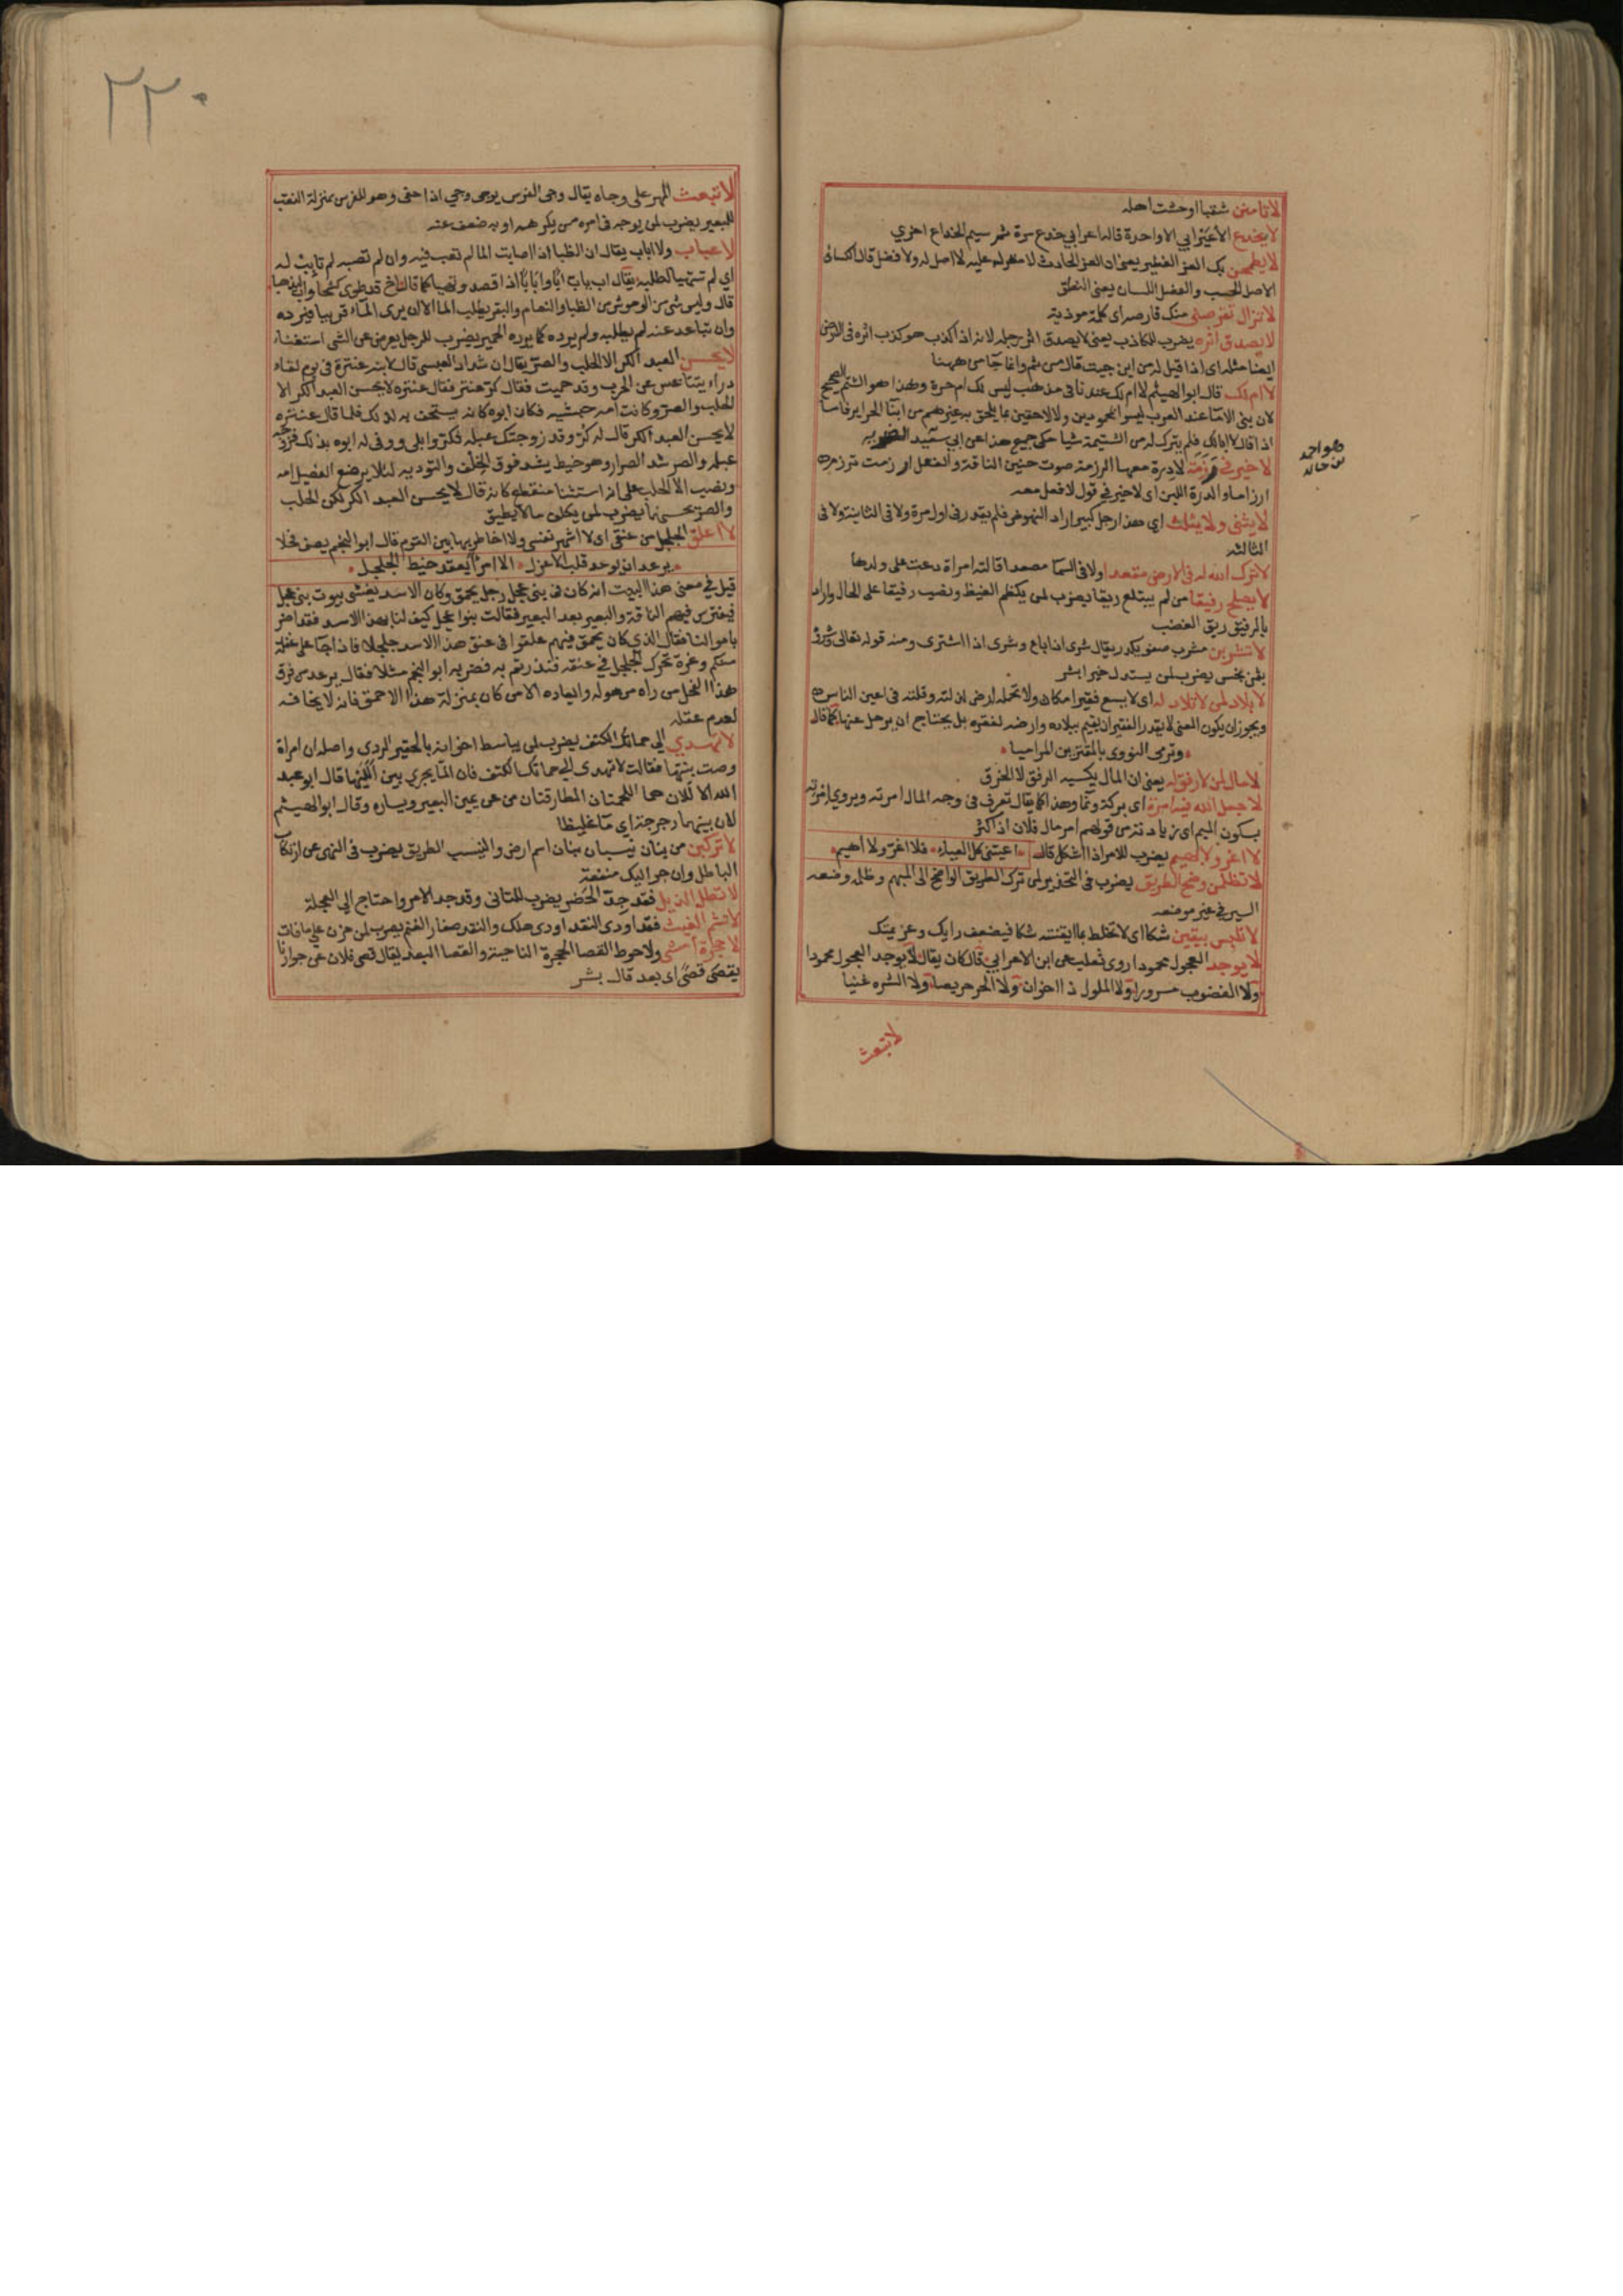 لا تامنن شقبا اوحشت اهله
لا يخدع الاعرابي الا واحدة قالها اعرابي خدع مرة ثم سيم الخداع اخري
لا يطمحن بك العز الفطير يعني ان العز الحادث لا معول عليه لا اصل له ولا فضل قال الكسائي
الاصل الحسب والفضل اللسان يعني النطق
لا تزال تقرصني منك قارصة اي كلمة موذية
لا يصدق اثره يضرب للكاذب يعني لا يصدق اثر رجله لانه اذا كذب هو كذب اثره في الارض
ايضا مثله اي اذا قيل له من اين جيت قال من ثم وانما جا من ههنا
لا ام لك قال ابو الهيثم لا ام لك عندنا في مذهب ليس لك ام حرة وهذا هو الشتم الصحيح
لان بني الاما عند العرب ليسوا بمحمودين ولا لاحقين بما يلحق به غيرهم من ابنا الحراير فاما
اذا قال لا ابالك فلم يترك له من الشتيمة شيا حكي جميع هذا عن ابي سعيد الضرير
هو احمد
بن خالد
لا خير في رزمة لا درة معها الرزمة صوت حنين الناقة والفعل ارزمت ترزم
ارزاما والدرة اللبن اي لا خير في قول لا فعل معه
لا يثني ولا يثلث اي هذا رجل كبير اراد النهوض فلم يقدر في اول مرة ولا في الثانية ولا في
الثالثه
لا ترك الله له في الارض مقعدا ولا في السما مصعدا قالته امراة دعت على ولدها
لا يصلح رفيقا من لم يبتلع ريقا يضرب لمن يكظم الغيظ ونصب رفيقا على الحال واراد
بالريق ريق الغضب
لا تشرين مشرب صفو بكدر يقال شرى اذا باع وشرى اذا اشترى ومنه قوله تعالى وشروه
بثمن بخس يضرب لمن يستبدل خيرا بشر
لا بلاد لمن لا تلاد له اي لا يسع فقيرا مكان ولا تحمله ارض لذلته وقلته في اعين الناس
ويجوز ان يكون المعنى لا يقدر الفقير ان يقيم ببلاده وارضه لفقره بل يحتاج ان يرحل عنها كما قال
وترمى النوى بالمقترين المراميا
لا مال لمن لا رفق له يعني ان المال يكسبه الرفق لا الخرق
لا جعل الله فيه امرة اي بركة ونما وهذا كما يقال تعرف في وجه المال امرته ويروي امرته
بسكون الميم اي زيادته من قولهم امر مال فلان اذا كثر
لا اغزو ولا اهيم يضرب للامر اذا اشكل قال اعيتني كل العياء فلا اغر ولا اهيم
لا تظلمن وضح الطريق يضرب في التحذير لمن ترك الطريق الواضح الى المبهم وظلمه وضعه
السير في غير موضعه
لا تلبس بيقين شكا اي لا تخلط بما ايقنته شكا فيضعف رايك وعزيمتك
لا يوجد العجول محمودا روى ثعلب عن ابن الاعرابي قال كان يقال لا يوجد العجول محمودا
ولا الغضوب مسرورا ولا الملول ذا اخوان ولا الحر حريصا ولا الشره غنيا
لا تبعث
٢٢٠
لا تبعث المهر على وجاه يقال وجى الفرس يوجى وجي اذا حفى وهو للفرس بمنزلة النقب
للبعير يضرب لمن يوجه في امره من يكرهه او به ضعف عنه
لا عباب ولا اباب يقال ان الظبا اذا اصابت الما لم تعب فيه وان لم تصبه لم تابب له
اي لم تتهيا لطلبه يقال اب يؤب ابا وابابا اذا قصد وتهيا كما قال اخ قد طوى كشحا واب ليذهبا
قال وليس شي من الوحوش من الظبا والنعام والبقر يطلب الما الا ان يرى الماء قريبا فيرده
وان تباعد عنه لم يطلبه ولم يرده كما يرده الحمير يضرب للرجل يعرض عن الشي استغناء
لا يحسن العبد الكر الا الحلب والصر يقال ان شداد العبسي قال لابنه عنترة في يوم لقاء
وراه يتقاعس عن الحرب وقد حميت فقال كر عنتر فقال عنتره لا يحسن العبد الكر الا
الحلب والصر وكانت امه حبشيه فكان ابوه كانه يستخف به لذلك فلما قال عنتره
لا يحسن العبد الكر قال له كر وقد زوجتك عبله فكر وابلي ووفى له ابوه بذلك فزوجه
عبله والصر شد الصرار وهو خيط يشد فوق الخلف والتودية لئلا يرضع الفصيل امه
ونصب الا الحلب على انه استثنا منقطع كانه قال لا يحسن العبد الكر لكن الحلب
والصر يحسنهما يضرب لمن يكلف ما لا يطيق
لا اعلق الجلجل من عنقي اي لا اشهر نفسي ولا اخاطر بها بين القوم قال ابو النجم يصف فحلا
يرعد ان يوعد قلب الاعزل الا امرا يعقد خيط الجلجل
قيل في معنى هذا البيت انه كان في بني عجل رجل يحمق وكان الاسد يغشى بيوت بني عجل
فيفترس فيهم الناقة والبعير بعد البعير فقالت بنوا عجل كيف لنا بهذا الاسد فقد اضر
باموالنا فقال الذي كان يحمق فيهم علقوا في عنق هذا الاسد جلجلا فاذا جا على غفلة
منكم وغرة تحرك الجلجل في عنقه فنذرتم به فضربه ابو النجم مثلا فقال يرعد من فرق
هذا الفحل من راه من هوله وايعاده الا من كان بمنزلة هذا الاحمق فانه لا يخافه
لعدم عقله
لا تهدي الي حماتك الكتف يضرب لمن يباسط اخوانه بالحقير الردي واصله ان امراة
وصت بنتها فقالت لا تهدي الي حماتك الكتف فان الما يجري بين الليها قال ابو عبد
الله الا للان هما اللحمتان المطارقتان من عن يمين البعير ويساره وقال ابو الهيثم
لان بينهما رجرجة اي ما غليظا
لا تركبن من بنان نيسبا بنان اسم ارض والنيسب الطريق يضرب في النهي عن ارتكاب
الباطل وان جر اليك منفعة
لا تطل الذيل فقد جد الحضر يضرب للمتاني وقد جد الامر واحتاج الي العجلة
لا تشم الغيث فقد اودى النقد اودى هلك والنقد صغار الغنم يضرب لمن حزن علي ما فات
لا حجرة امشي ولا حوط القصا الحجرة الناحية والقصا البعد يقال قصى فلان عن جوارنا
يقصى قصى اي بعد قال بشر